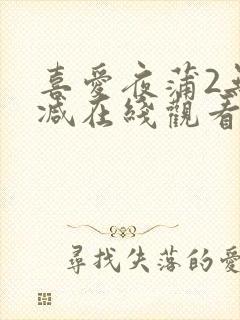 喜愛夜蒲2
減在綫觀看
尋找失落的愛